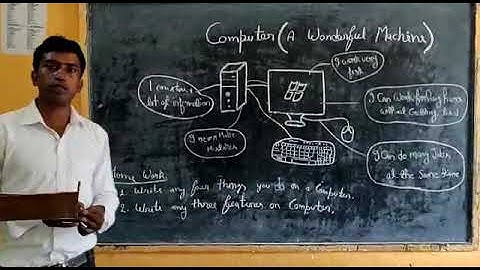 Computer (A Wonderful Machine)
I work very
fast
I
lot of information
I Can Work for long hours
without Getting tired
I never Make
Mistakes
I Can do many Jobs
at the Same time
Home Work:
1. Write any four things you do on a Computer.
2. Write any three features on Computer.